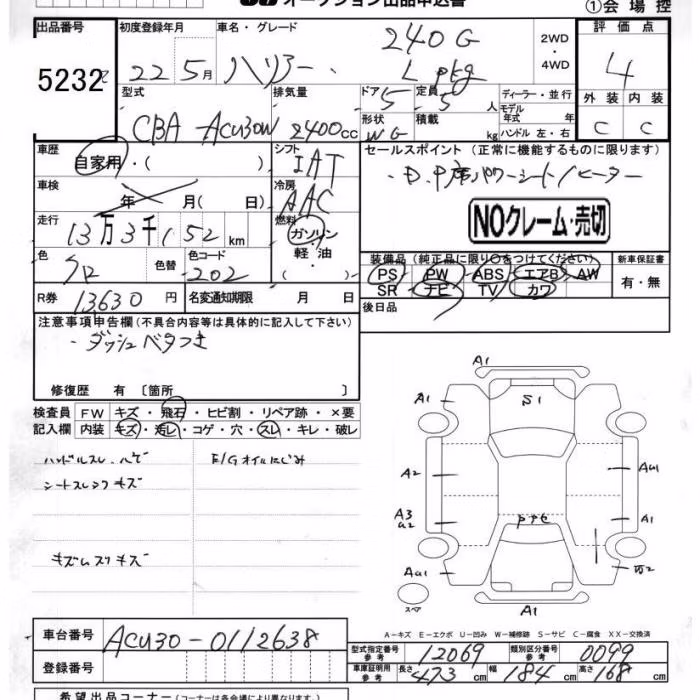 オークション出品申込書
①会場控
出品番号 初度登録年月 車名・グレード 評価点
5232 22 5月 ハリアー 240G L pkg 2WD・4WD 4
型式 排気量 ドア 定員 ディーラー・並行 外装 内装
CBA ACU30W 2400cc 5 5人 モデル年式 年式 C C
形状 WG 積載 kg ハンドル 左・右
車歴 シフト セールスポイント (正常に機能するものに限ります)
自家用・( ) IAT ・D.P席パワーシート/ヒーター
車検 年 月( 日) 冷房 AAC
NOクレーム・売切
走行 13万3千152km 燃料 ガソリン・軽油・( )
色 色替 色コード 202
装備品 (純正品に限り○をつけてください) 新車保証書
PS PW ABS エアB AW 有・無
SR ナビ TV カワ
R券 13630円 名変通知期限 月 日 後日品
注意事項申告欄 (不具合内容等は具体的に記入して下さい)
・ダッシュベタつき
修復歴 有 〔箇所 〕
検査員 FW キズ・飛石・ヒビ割・リペア跡・×要
記入欄 内装 キズ・汚レ・コゲ・穴・スレ・キレ・破レ
ハンドルスレ E/Gオイルにじみ
シートスレ キズ
キズ キズ
A1
A1 S1 A1
A2 AU1
A3 U2 A1
AU1
スペア A1
A-キズ E-エクボ U-凹み W-補修跡 S-サビ C-腐食 XX-交換済
車台番号 ACU30-0112638
登録番号
型式指定番号 参考 12069 類別区分番号 参考 0099
車庫証明用 参考 長さ 473cm 幅 184cm 高さ 168cm
希望出品コーナー (コーナーは各会場により異なります)